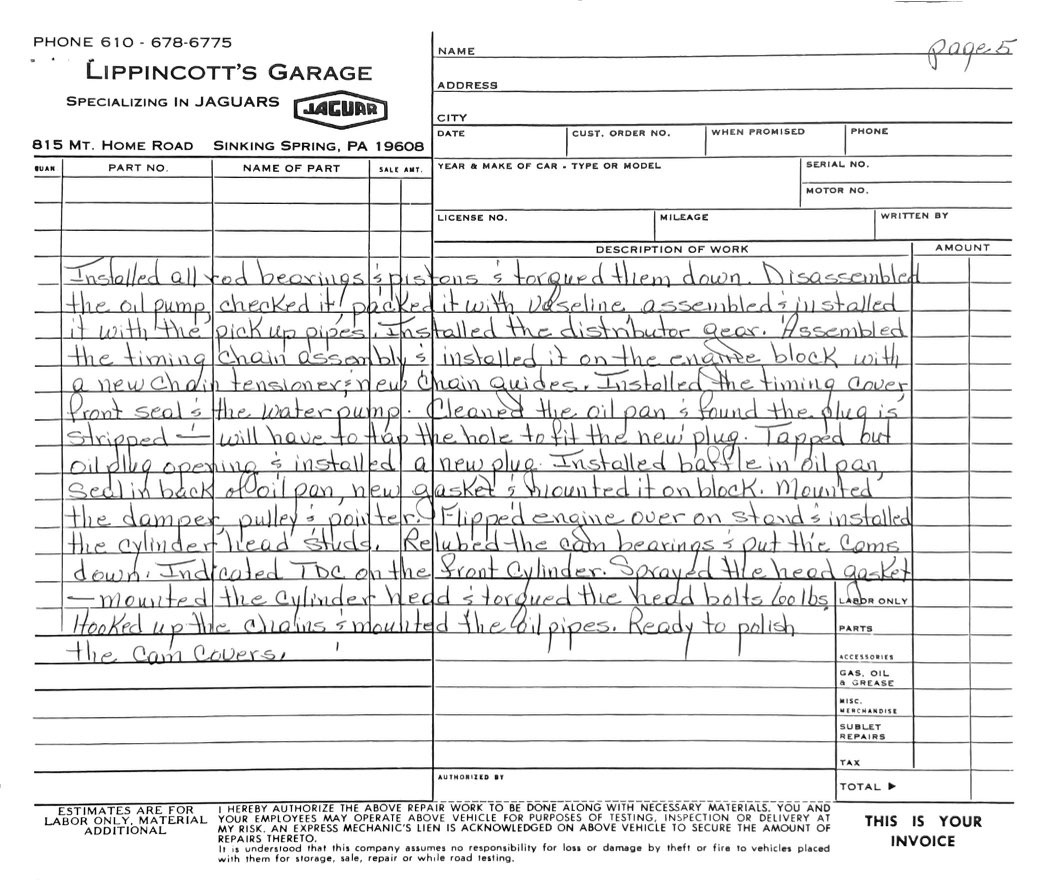 PHONE 610 - 678-6775
LIPPINCOTT'S GARAGE
SPECIALIZING IN JAGUARS
JAGUAR
815 MT. HOME ROAD SINKING SPRING, PA 19608
page 5
NAME
ADDRESS
CITY
DATE CUST. ORDER NO. WHEN PROMISED PHONE
QUAN PART NO. NAME OF PART SALE AMT.
YEAR & MAKE OF CAR - TYPE OR MODEL SERIAL NO.
MOTOR NO.
LICENSE NO. MILEAGE WRITTEN BY
DESCRIPTION OF WORK AMOUNT
Installed all rod bearings & pistons & torqued them down. Disassembled
the oil pump, checked it, packed it with Vaseline, assembled & installed
it with the pick up pipes. Installed the distributor gear. Assembled
the timing chain assembly & installed it on the engine block with
a new chain tensioner & new chain guides. Installed the timing cover
front seal & the water pump. Cleaned the oil pan & found the plug is
stripped — will have to tap the hole to fit the new plug. Tapped out
oil plug opening & installed a new plug. Installed baffle in oil pan,
Seal in back of oil pan, new gasket & mounted it on block. Mounted
the damper, pulley & pointer. Flipped engine over on stand & installed
the cylinder head studs. Relubed the cam bearings & put the cams
down. Indicated TDC on the front cylinder. Sprayed the head gasket
— mounted the cylinder head & torqued the head bolts 100 lbs.
Hooked up the chains & mounted the oil pipes. Ready to polish
the cam covers.
LABOR ONLY
PARTS
ACCESSORIES
GAS, OIL
& GREASE
MISC.
MERCHANDISE
SUBLET
REPAIRS
TAX
AUTHORIZED BY
TOTAL ▶
ESTIMATES ARE FOR
LABOR ONLY, MATERIAL
ADDITIONAL
I HEREBY AUTHORIZE THE ABOVE REPAIR WORK TO BE DONE ALONG WITH NECESSARY MATERIALS. YOU AND
YOUR EMPLOYEES MAY OPERATE ABOVE VEHICLE FOR PURPOSES OF TESTING, INSPECTION OR DELIVERY AT
MY RISK. AN EXPRESS MECHANIC'S LIEN IS ACKNOWLEDGED ON ABOVE VEHICLE TO SECURE THE AMOUNT OF
REPAIRS THERETO.
It is understood that this company assumes no responsibility for loss or damage by theft or fire to vehicles placed
with them for storage, sale, repair or while road testing.
THIS IS YOUR
INVOICE